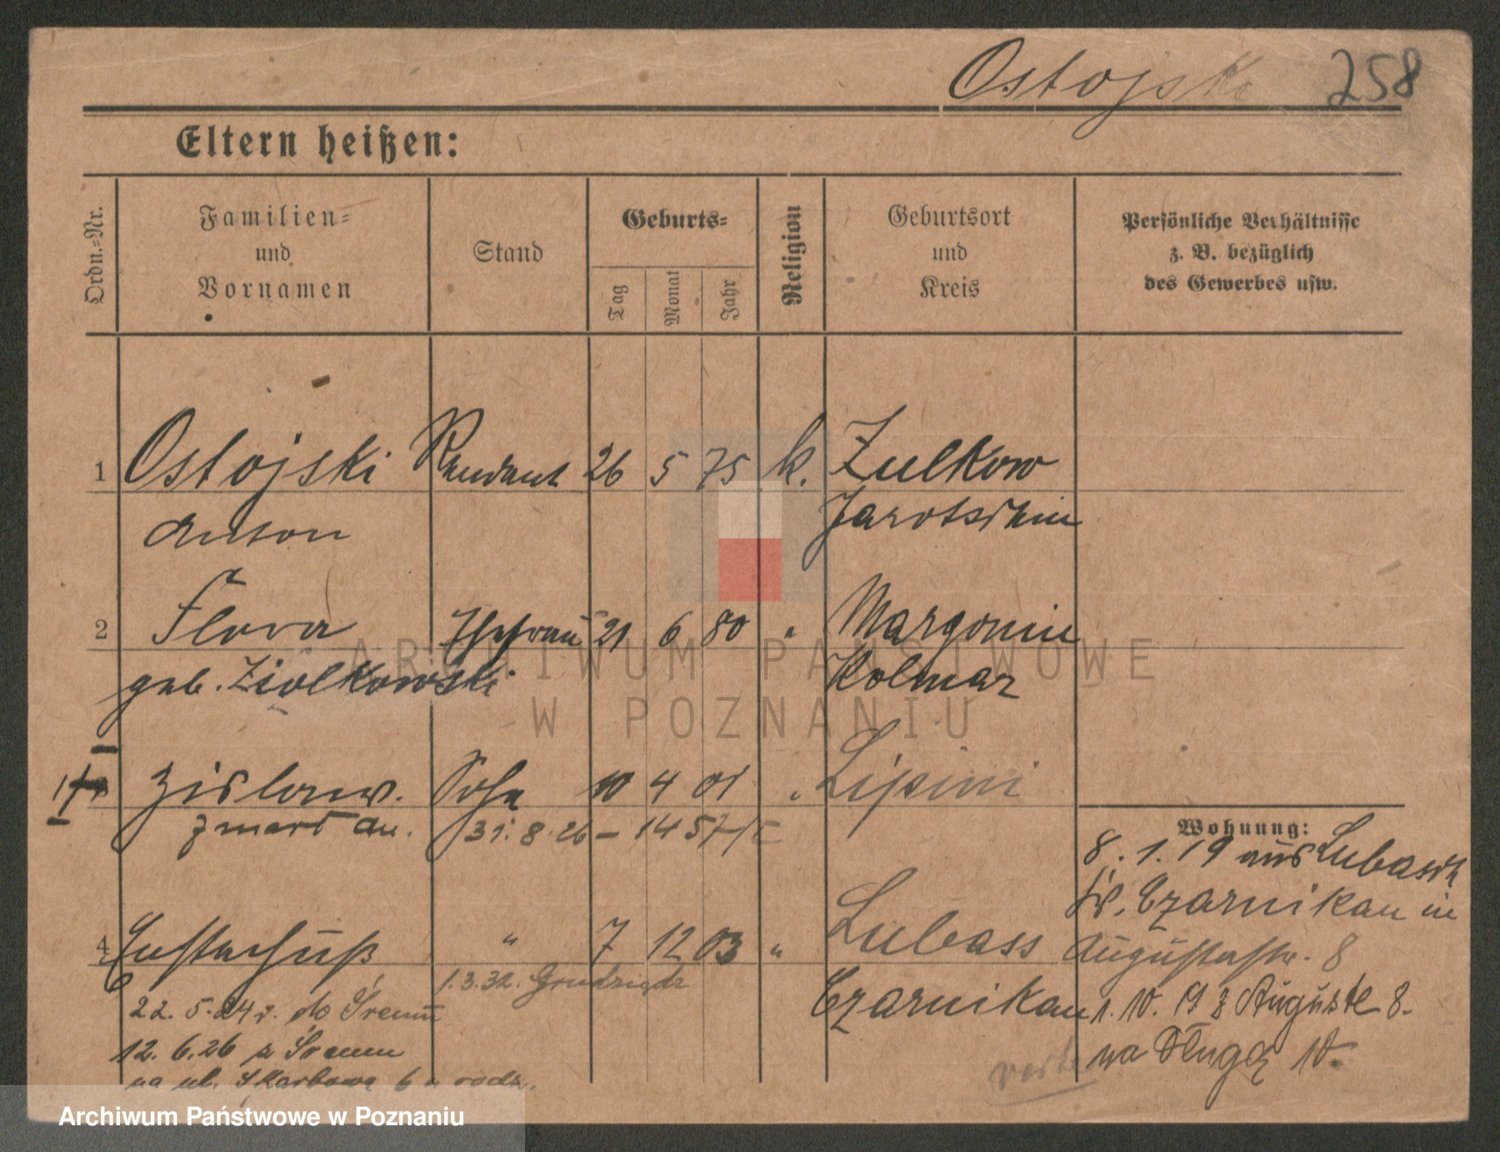 Ostojski 258
Eltern heißen:
Ordn.=Nr.
Familien=
und
Vornamen
Stand
Geburts=
Tag
Monat
Jahr
Religion
Geburtsort
und
Kreis
Persönliche Verhältnisse
z. B. bezüglich
des Gewerbes usw.
1 Ostojski Rendant 26 5 75 k. Zulkow
Anton Jarotschin
2 Flora Ehefrau 21 6 80 " Margonin
geb. Ziolkowski Kolmar
Zislaw. Sohn 10 4 01 " Lipini
zmarł dn. 31. 8. 26 – 1457/
Wohnung:
8. 1. 19 aus Lubasch
Kr. Czarnikau in
Augustastr. 8
1. 10. 19 z Auguste 8.
na Długą 10.
4 Eustachius " 7 12 03 " Lubass
1.3.32. Grudziądz Czarnikau
22. 5. 24 r. do Śremu
12. 6. 26 z Śremu
na ul. Skarbową 6 u rodz.
verte
ARCHIWUM PAŃSTWOWE
W POZNANIU
Archiwum Państwowe w Poznaniu